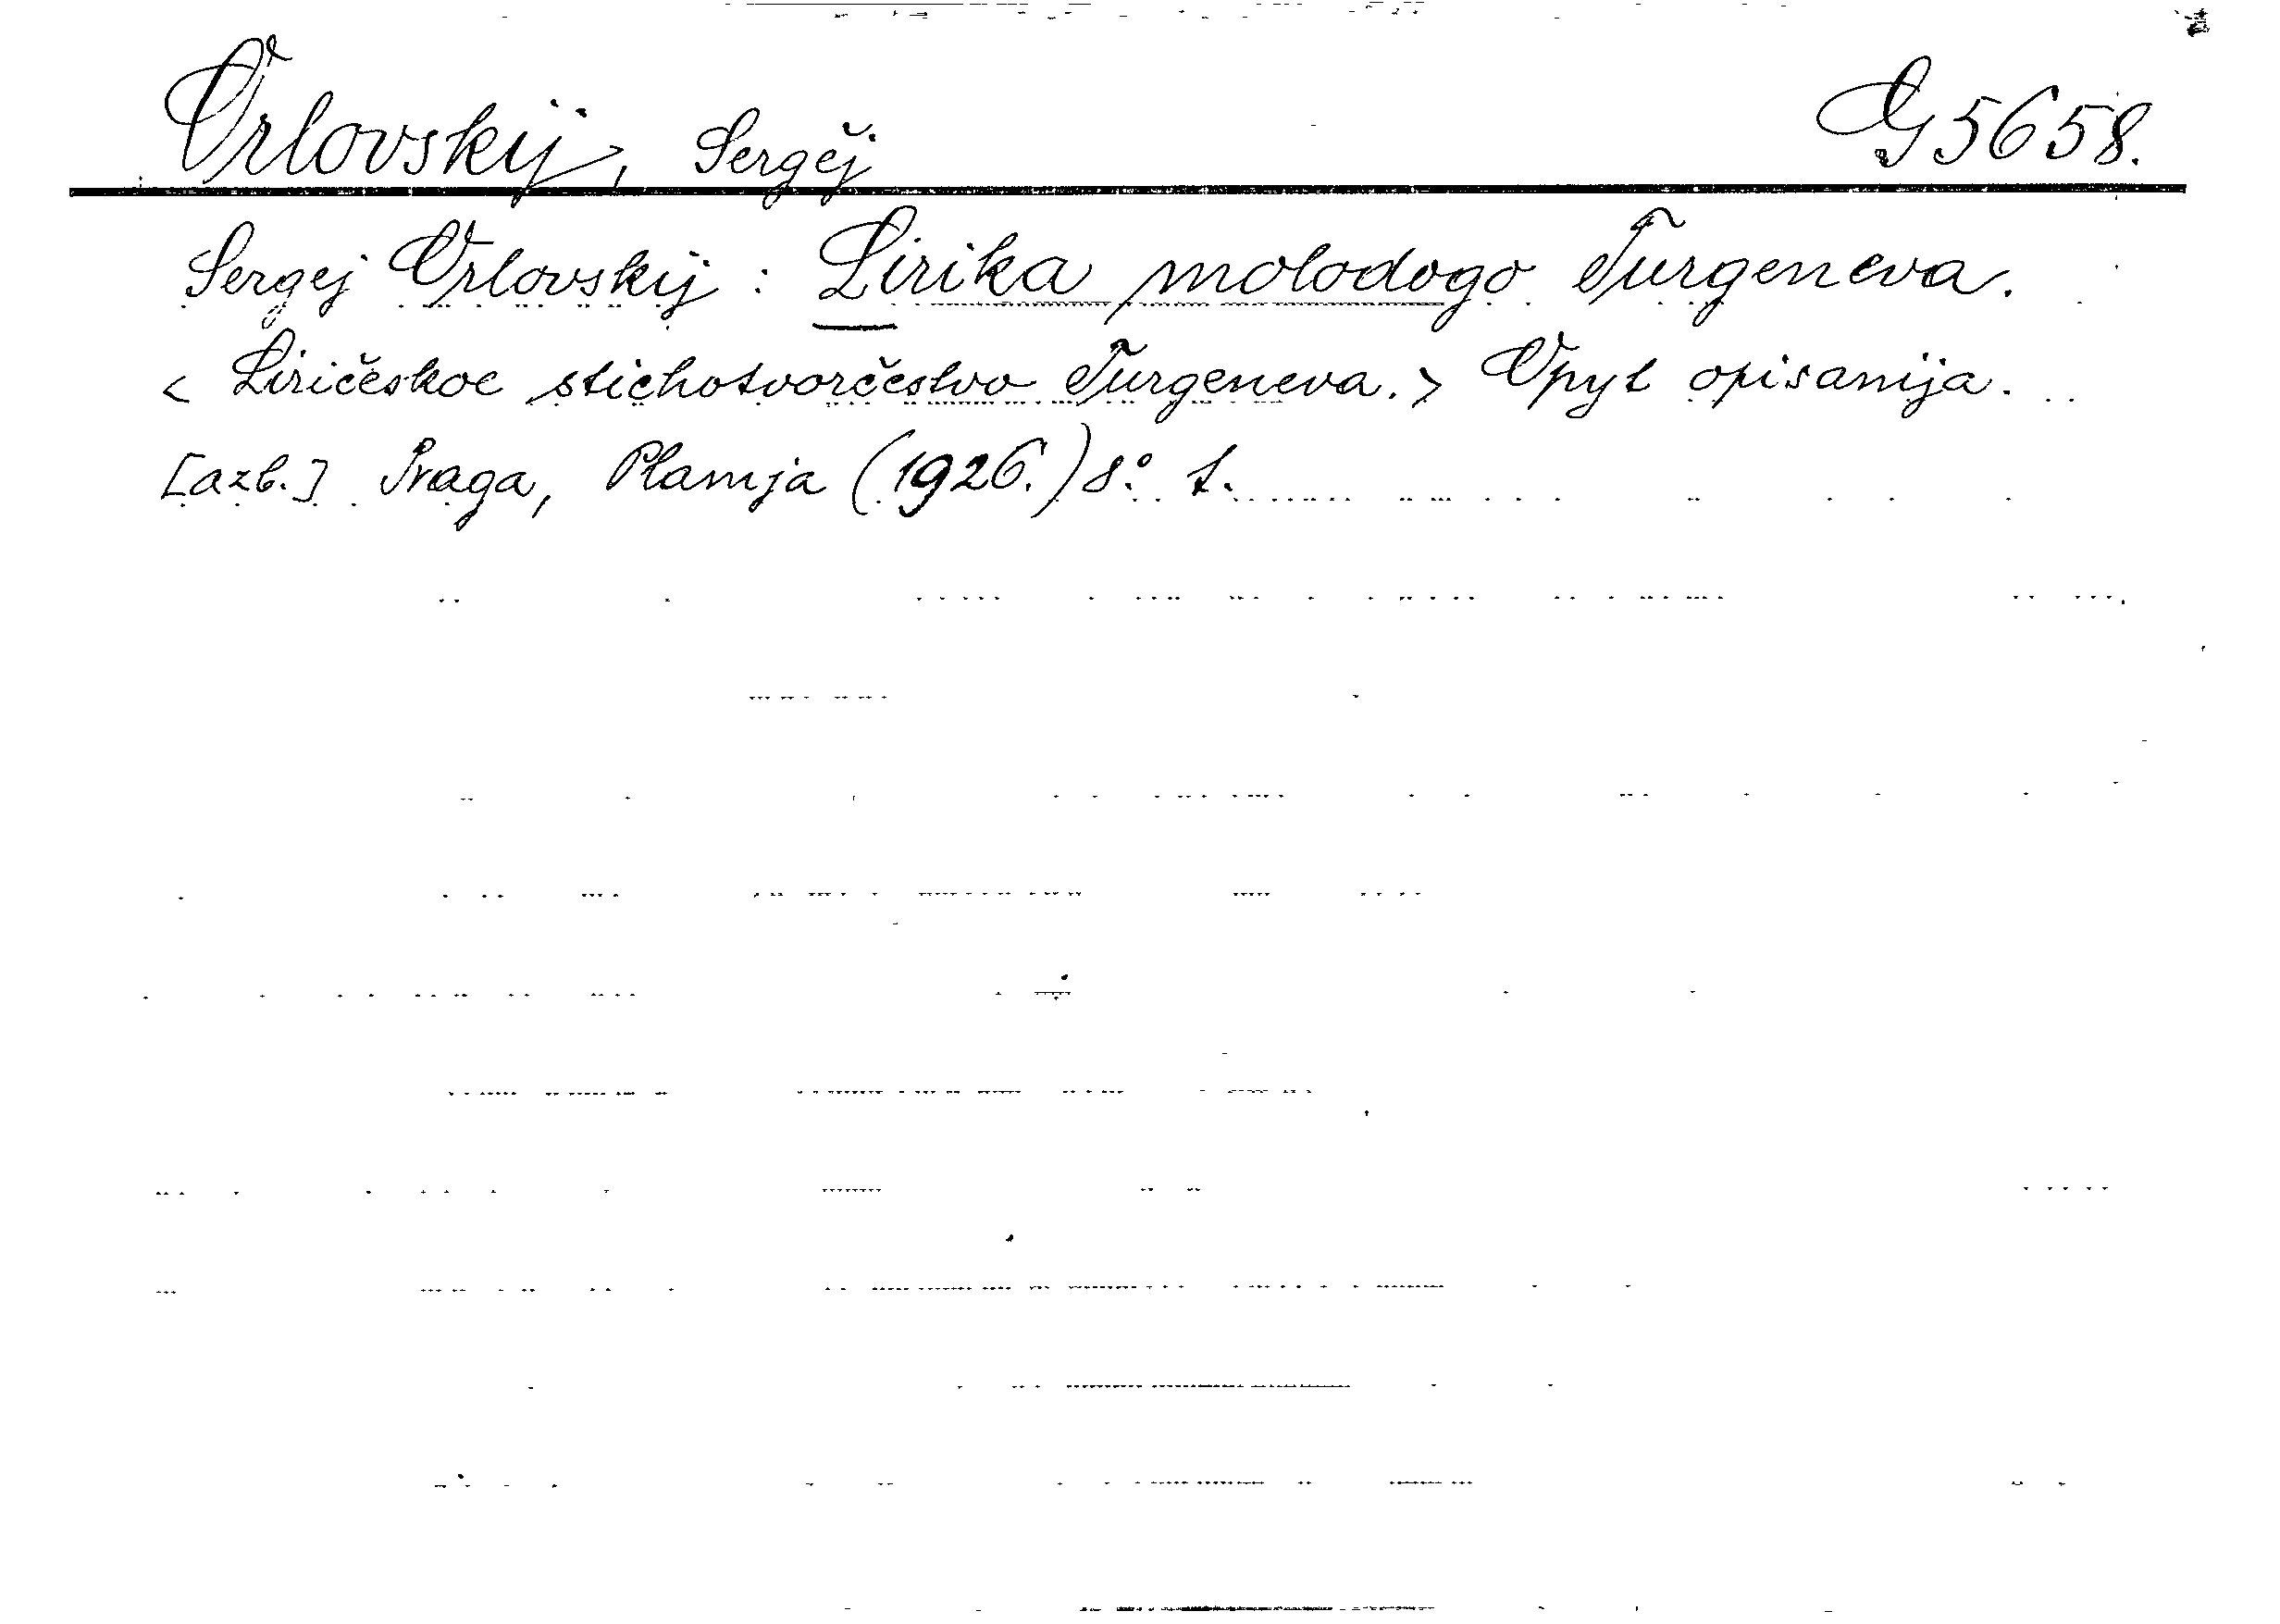 Orlovskij, Sergěj G 5658.
Sergej Orlovskij : Lirika molodogo Turgeneva.
< Liričeskoe stichotvorčestvo Turgeneva. > Opyt opisanija.
[azb.] Praga, Plamja (1926.) 8° 1.